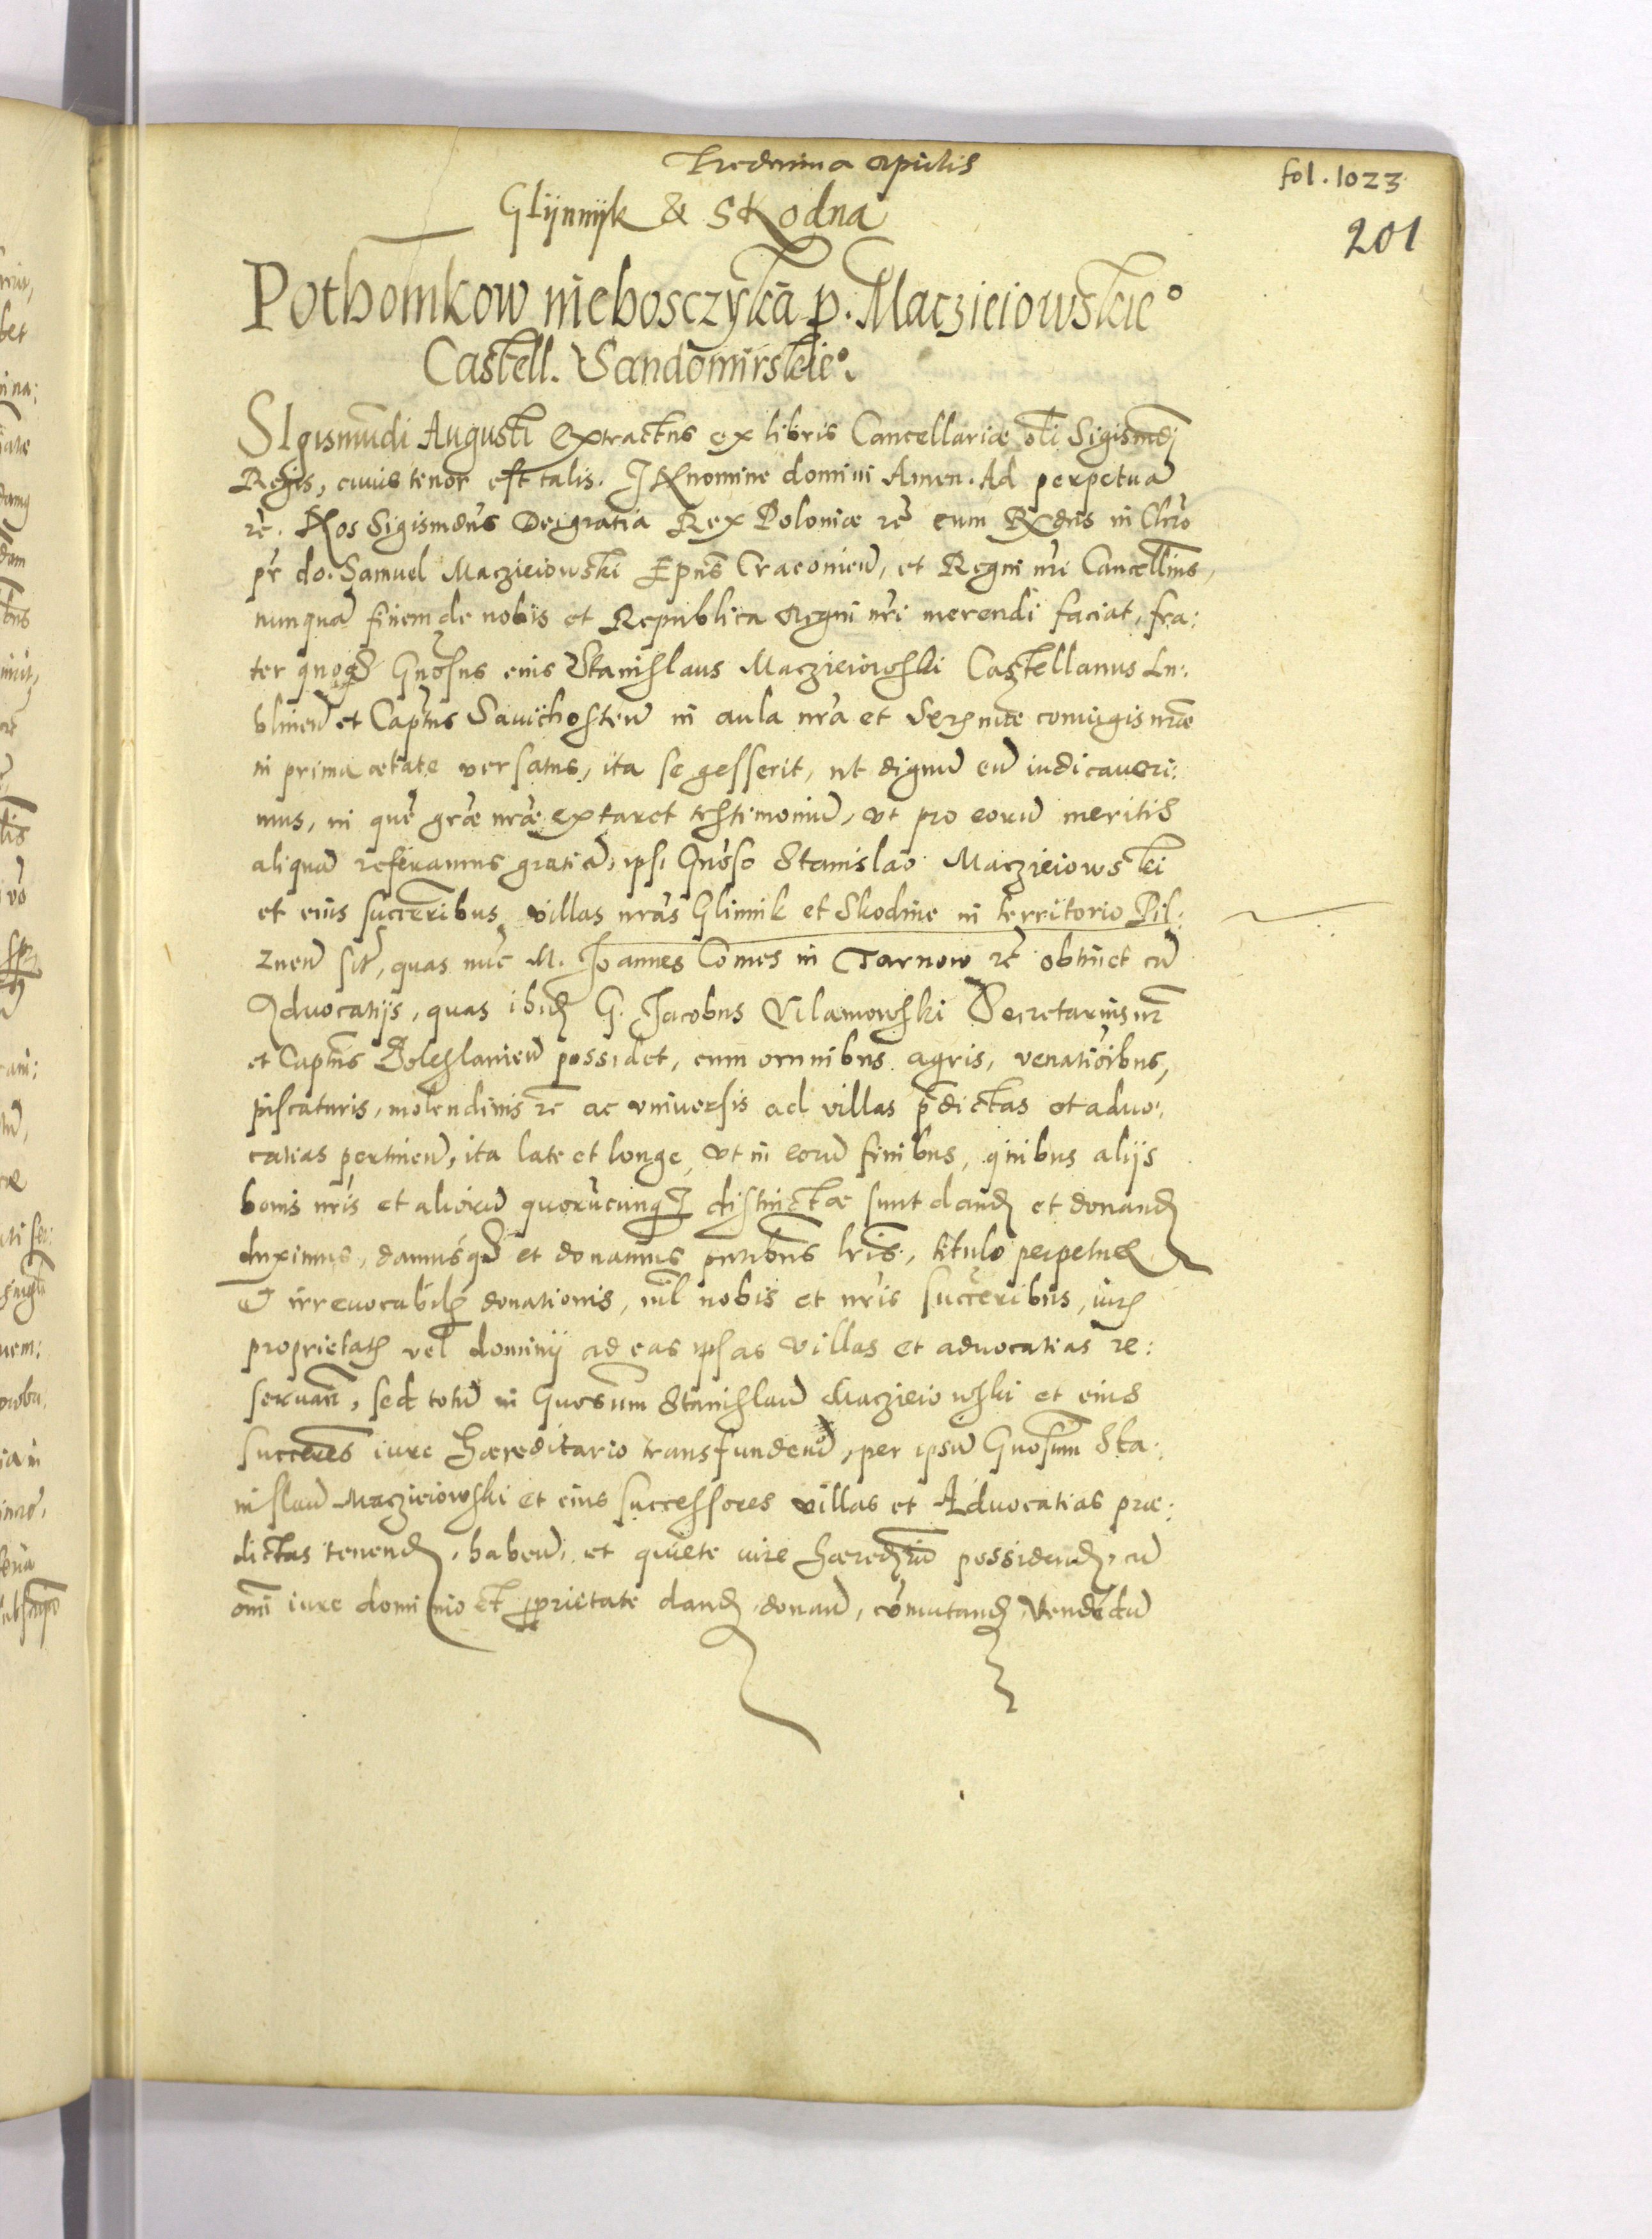 Tredecima Aprilis
fol. 1023
201
Glÿnnÿk & Skodna
Pothomkow nieboszczyka p. Maczieiowskie°
Castell. Sandomirskie°.
SIgismūdi Augusti extractus ex libris Cancellariæ oli Sigismdi
Regis, cuius tenor est talis. IN nomine domini Amen. Ad perpetuā
rē. Nos Sigismdus Dei gratia Rex Poloniæ rē cum Rndus in Chro
pr do. Samuel Maczieiowski Epus Cracovien, et Regni nri Cancellrius,
nunquā finem de nobis et Republica Regni nri merendi faciat, fra:
ter quoq Gnosus eius Stanislaus Maczieiowski Castellanus Lu:
blinen et Captus Sawichosten in aula nra et Serenme coniugis nræ
in prima ætate versatus, ita se gesserit, ut dignū eū iudicaveri:
mus, in quē græ nræ extaret testimoniū, vt pro eorū meritis
aliquā referamus gratiā, ipsi Gnoso Stanislao Maczieiowski
et eius succeribus villas nras Glinnik et Skodnie in territorio Pil:
znen sit, quas nūc M. Joannes Comes in Tarnow rē obtinet cū
Advocatijs, quas ibid G. Jacobus Vilamowski Secretarius nr
et Captus Boleslavien possidet, cum omnibus agris, venatioibus,
piscaturis, molendinis rē ac vniversis ad villas pdictas et advo:
catias pertinen, ita late et longe, vt in eorū finibus, quibus alijs
bonis nris et aliorū quorūcunq distinctæ sunt dand et donand
duximus, damusq et donamus pntibus lris, titulo perpetuæ
Et irrevocabilis donationis, nil nobis et nris succeribus, iuris
proprietatis vel dominij ad eas ipsas villas et advocatias re:
servan, sed totū in Gnosum Stanislaū Maczieiowski et eius
succeres iure Hæreditario transfunden, per ipsū Gnosum Sta:
nislaū Maczieiowski et eius successores villas et Advocatias præ:
dictas tenend, haben, et quiete iure hæredriū possidend, cū
omi iure dominio et pprietate dand, donan, cōmutand, vendēdū